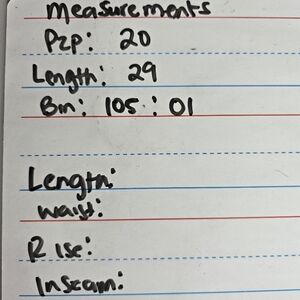 Measurements
P2P: 20
Length: 29
Bin: 105 : 01
Length:
Waist:
Rise:
Inseam: